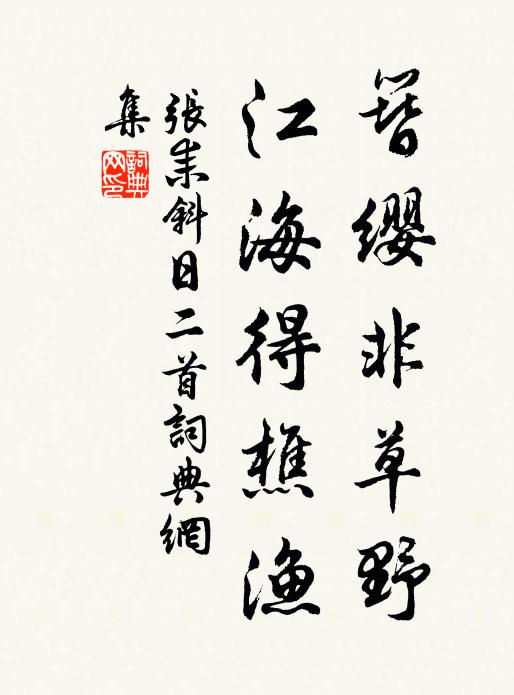 簪纓非草野
江海得樵漁
張耒斜日二首詞典網
集
詞典
网印